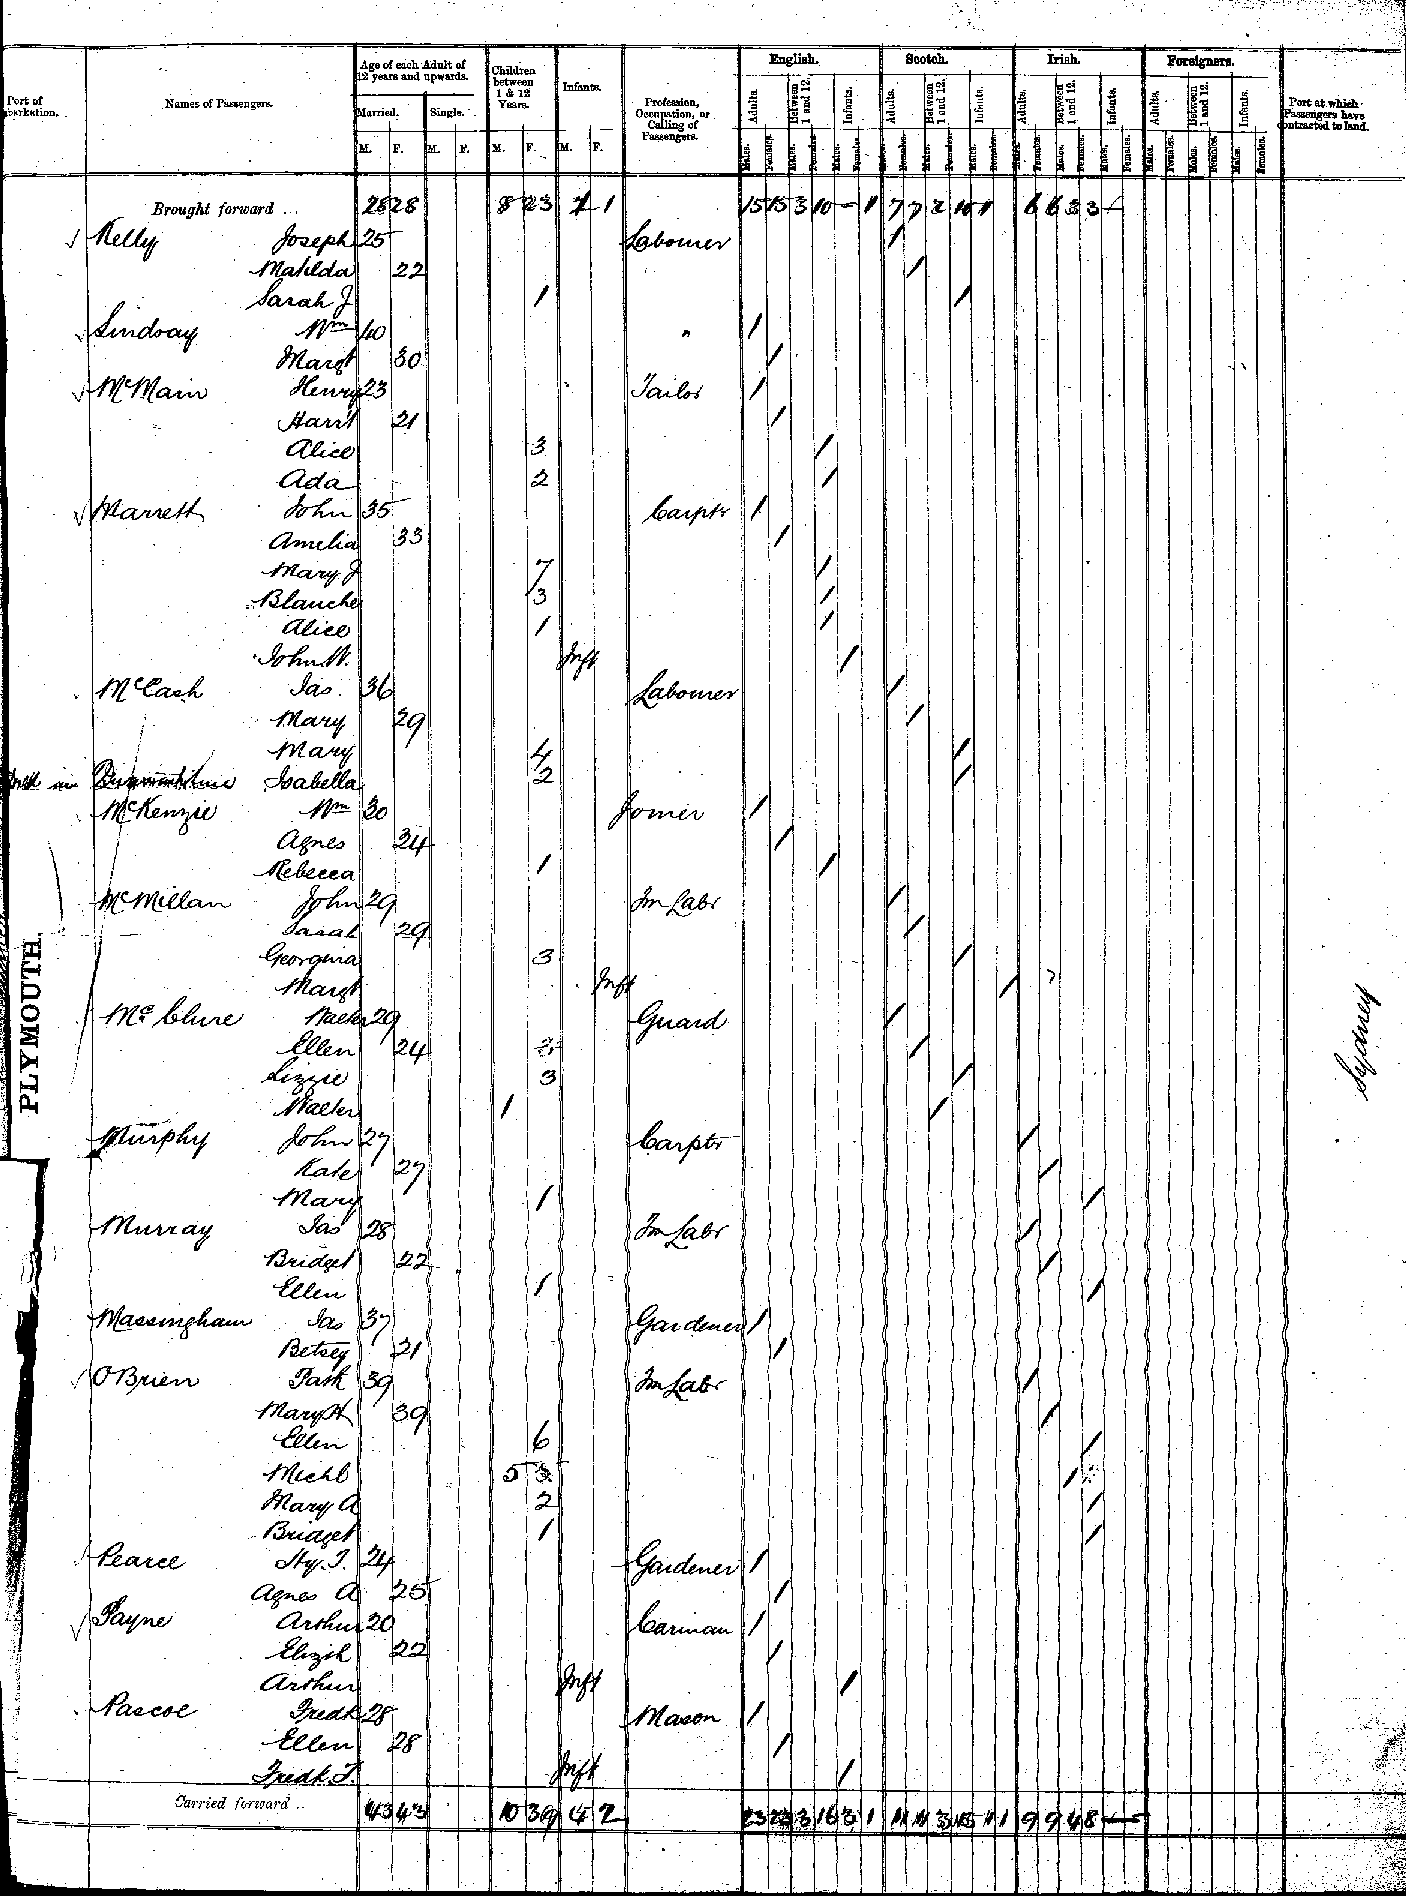 Port of
Names of Passengers.
Age of each Adult of 12 years and upwards.
Married. Single.
Children between 1 & 12 Years.
Infants.
Profession, Occupation, or Calling of Passengers.
English. Scotch. Irish. Foreigners.
Adults. Between 1 and 12. Infants. Adults. Between 1 and 12. Infants. Adults. Between 1 and 12. Infants. Adults. Between 1 and 12. Infants.
Port at which Passengers have contracted to land.
M. F. M. F. M. F. M. F.
Brought forward ... 28 28 8 23 1 1 15 15 3 10 - 1 7 7 2 10 1 6 6 3 3 -
Kelly Joseph 25 Labourer /
Matilda 22 /
Sarah J 1 /
Lindsay Wm 40 " /
Margt 30 /
McMain Henry 23 Tailor /
Harrt 21 /
Alice 3 /
Ada 2 /
Marrett John 35 Carptr /
Amelia 33 /
Mary J 7 /
Blanche 3 /
Alice 1 /
John W. Inft /
McCash Jas. 36 Labourer /
Mary 29 /
Mary 4 /
Isabella 2 /
McKenzie Wm 30 Joiner /
Agnes 24 /
Rebecca 1 /
McMillan John 29 Fm Labr /
Sarah 29 /
Georgina 3 /
Margt Inft /
McClure Walter 29 Guard /
Ellen 24 /
Lizzie 3 /
Walter 1 /
Murphy John 27 Carptr /
Kate 27 /
Mary 1 /
Murray Jas 28 Fm Labr /
Bridget 22 /
Ellen 1 /
Massingham Jas 37 Gardener /
Betsey 21 /
O'Brien Patk 39 Fm Labr /
Mary H 39 /
Ellen 6 /
Michl 5 /
Mary A 2 /
Bridget 1 /
Pearce Hy. T. 24 Gardener /
Agnes A 25 /
Payne Arthur 20 Carman /
Elizth 22 /
Arthur Inft /
Pascoe Fredk 28 Mason /
Ellen 28 /
Fredk T. Inft /
Carried forward .. 43 43 10 39 4 2 23 23 3 16 3 1 11 11 3 15 1 1 9 9 4 8 -
PLYMOUTH.
Sydney